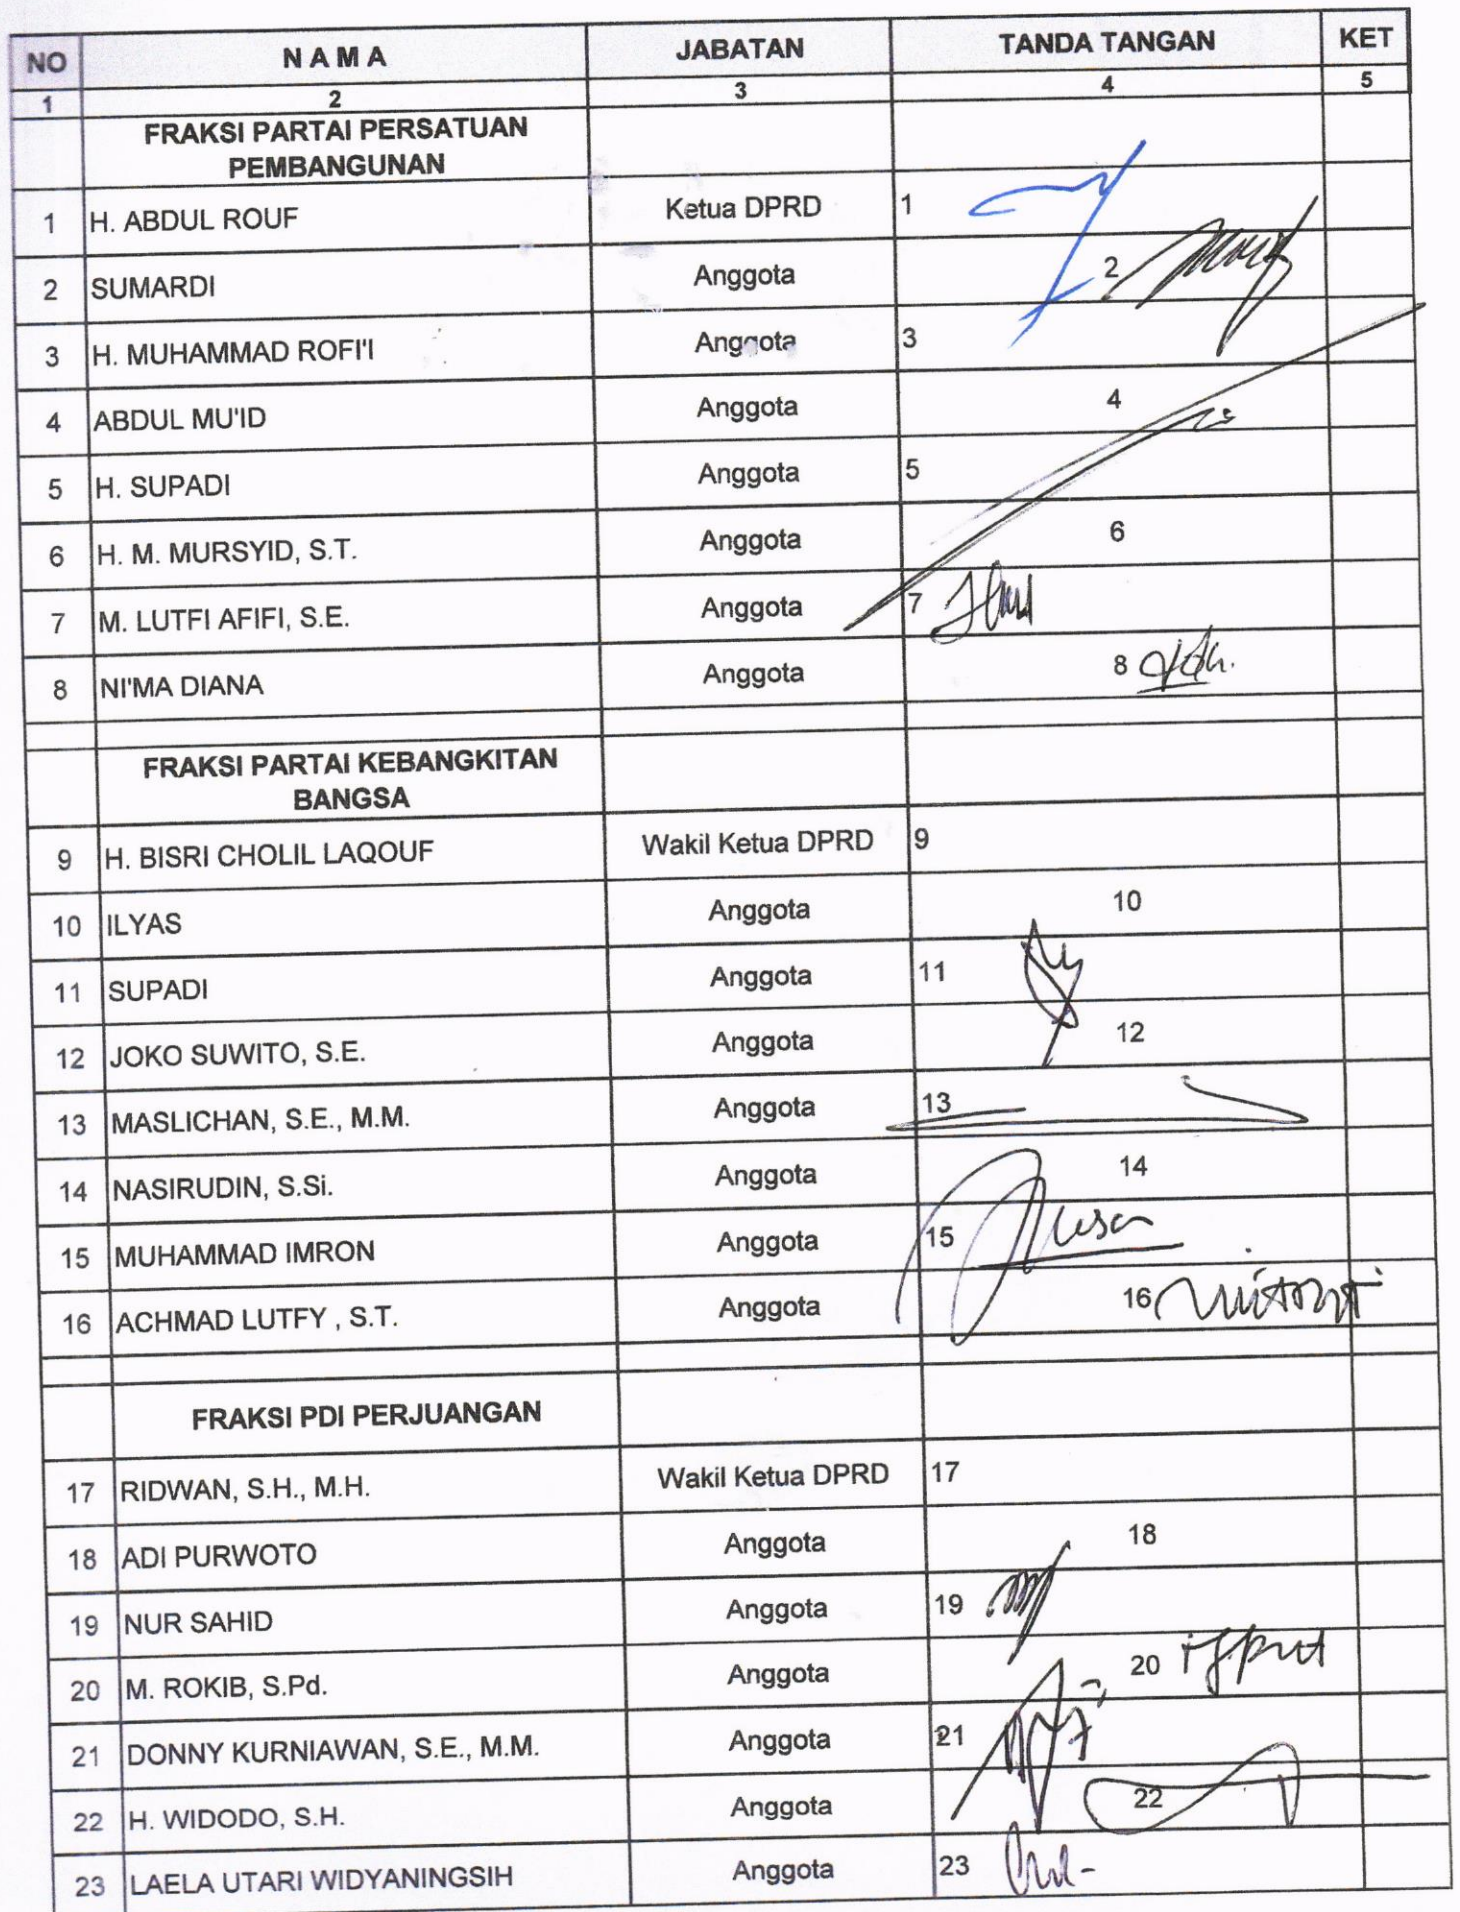 NO NAMA JABATAN TANDA TANGAN KET
1 2 3 4 5
FRAKSI PARTAI PERSATUAN
PEMBANGUNAN
1 H. ABDUL ROUF Ketua DPRD 1
2 SUMARDI Anggota 2
3 H. MUHAMMAD ROFI'I Anggota 3
4 ABDUL MU'ID Anggota 4
5 H. SUPADI Anggota 5
6 H. M. MURSYID, S.T. Anggota 6
7 M. LUTFI AFIFI, S.E. Anggota 7
8 NI'MA DIANA Anggota 8
FRAKSI PARTAI KEBANGKITAN
BANGSA
9 H. BISRI CHOLIL LAQOUF Wakil Ketua DPRD 9
10 ILYAS Anggota 10
11 SUPADI Anggota 11
12 JOKO SUWITO, S.E. Anggota 12
13 MASLICHAN, S.E., M.M. Anggota 13
14 NASIRUDIN, S.Si. Anggota 14
15 MUHAMMAD IMRON Anggota 15
16 ACHMAD LUTFY , S.T. Anggota 16
FRAKSI PDI PERJUANGAN
17 RIDWAN, S.H., M.H. Wakil Ketua DPRD 17
18 ADI PURWOTO Anggota 18
19 NUR SAHID Anggota 19
20 M. ROKIB, S.Pd. Anggota 20
21 DONNY KURNIAWAN, S.E., M.M. Anggota 21
22 H. WIDODO, S.H. Anggota 22
23 LAELA UTARI WIDYANINGSIH Anggota 23